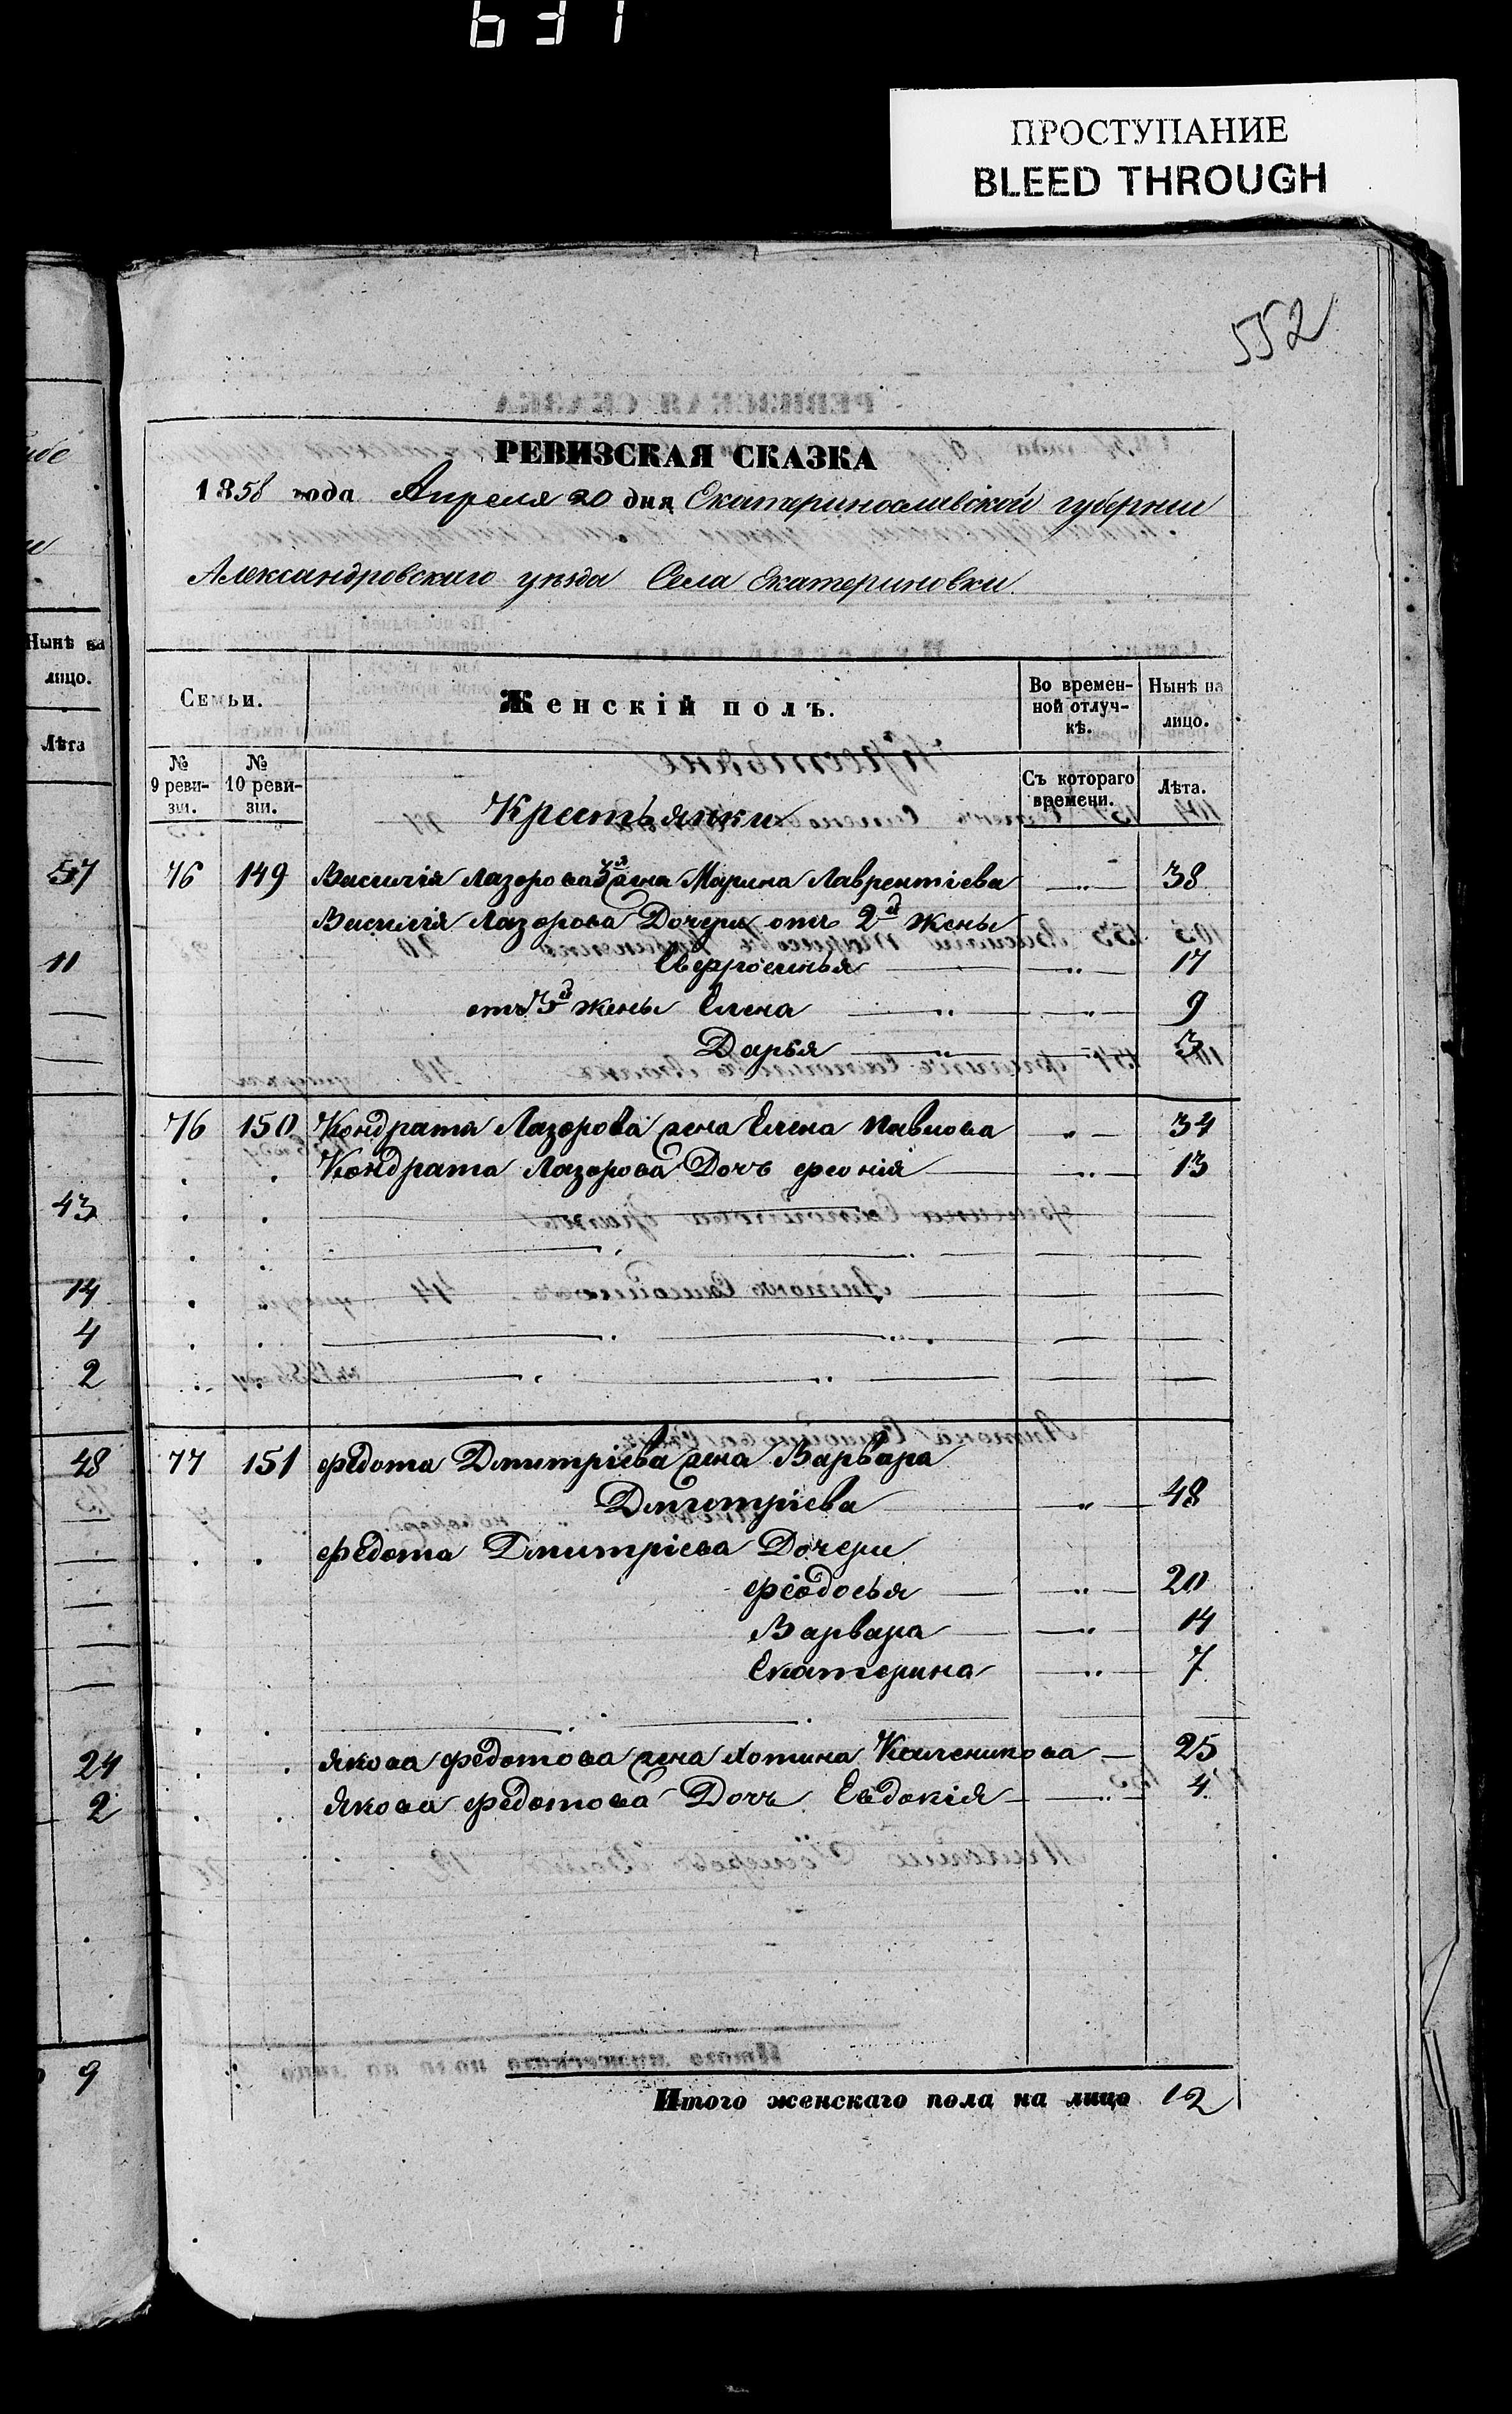 631
ПРОСТУПАНИЕ
BLEED THROUGH
552
РЕВИЗСКАЯ СКАЗКА
1858 года Апреля 20 дня Екатеринославской губернии
Александровскаго уезда Села Екатериновки
Семьи. Женскій полъ. Во времен-ной отлуч-кѣ. Нынѣ на лицо.
№ 9 реви-зіи. № 10 реви-зіи. Съ котораго времени. Лѣта.
Крестьянки
76 149 Василія Лазорова 3я жена Марина Лаврентіева 38
Василія Лазорова Дочери отъ 2й жены
17
отъ 3й жены Елена 9
Дарья 3
76 150 Кондрата Лазорова жена Елена Павлова 34
Кондрата Лазорова Дочь Феонія 13
77 151 Федота Дмитріева жена Варвара
Дмитріева 48
Федота Дмитріева Дочери
Феодосья 20
Варвара 14
Екатерина 7
Якова Федотова жена Хотина Каленикова 25
Якова Федотова Дочь Евдокія 4
Итого женскаго пола на лицо 12
Нынѣ на
лицо.
Лѣта
57
11
43
14
4
2
48
24
2
9